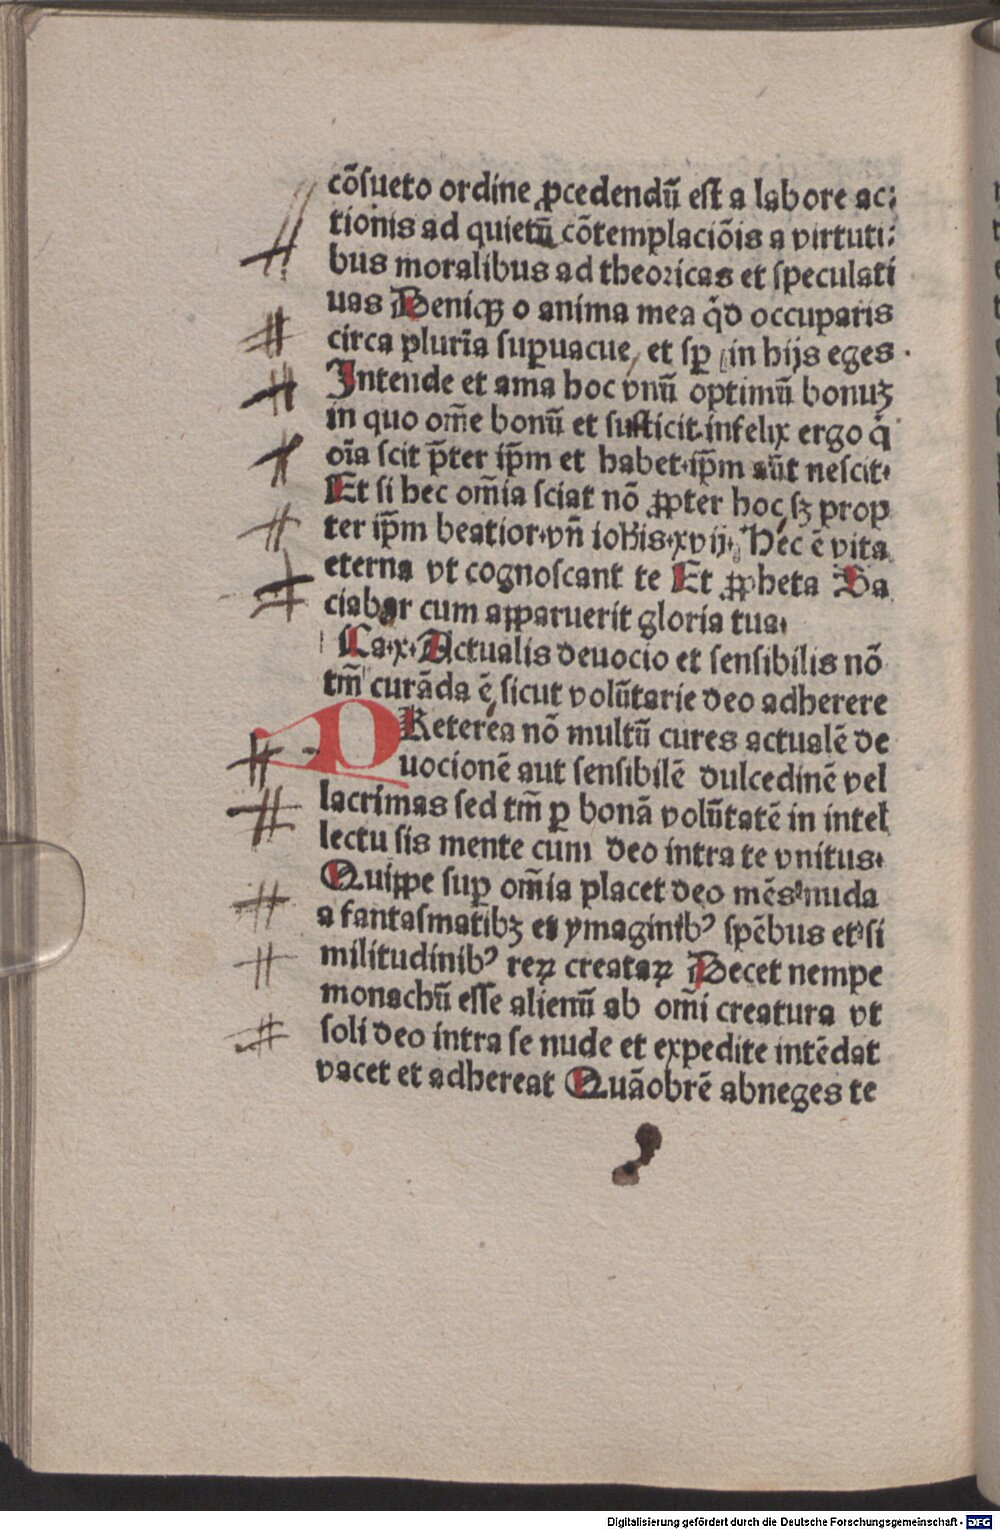 cõsueto ordine ꝓcedendũ est a labore ac:
tionis ad quietũ cõtemplaciõis a virtuti:
bus moralibus ad theoricas et speculati
uas Deniqꝫ o anima mea q̇d occuparis
circa plurīa suꝑuacue, et sꝑ in hijs eges.
Intende et ama hoc vnũ optimũ bonuȝ
in quo om̃e bonũ et sufficit.infelix ergo q̇
oīa scit p̃ter ip̃m et habet.ip̃m aũt nescit.
Et si hec om̃ia sciat nõ ꝓpter hoc sȝ prop
ter ip̃m beatior.vñ ioh̃is.xvij. Hec ē vita
eterna vt cognoscant te Et ꝓpheta Sa
ciabor cum apparuerit gloria tua.
Ca.x. Actualis deuocio et sensibilis nõ
tm̃ curãda ē, sicut volũtarie deo adherere
PReterea nõ multũ cures actualē de
uocionē aut sensibilē dulcedinē vel
lacrimas sed tm̃ ꝑ bonã volũtatē in intel
lectu sis mente cum deo intra te vnitus.
Quippe suꝑ om̃ia placet deo mēs nuda
a fantasmatibȝ et ymaginibꝰ spēbus et si
militudinibꝰ reꝝ creataꝝ Decet nempe
monachũ esse alienũ ab om̃i creatura vt
soli deo intra se nude et expedite intēdat
vacet et adhereat Quãobrē abneges te
Digitalisierung gefördert durch die Deutsche Forschungsgemeinschaft - DFG